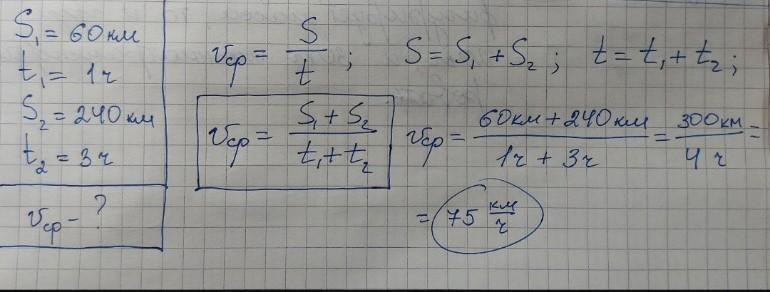 S₁ = 60 км
t₁ = 1 ч
S₂ = 240 км
t₂ = 3 ч
vср - ?
vср = S/t ; S = S₁ + S₂ ; t = t₁ + t₂ ;
vср = (S₁ + S₂)/(t₁ + t₂)
vср = (60 км + 240 км)/(1 ч + 3 ч) = 300 км/4 ч =
= 75 км/ч